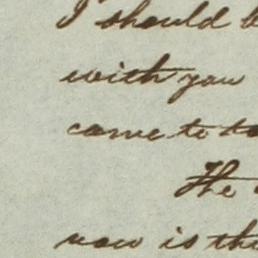 I should
with you
came to
The
now is the